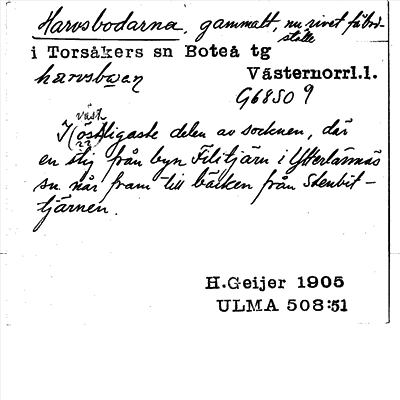 Harvsbodarna, gammalt, nu rivet fäbod-
ställe
i Torsåkers sn Boteå tg
harvsboan Västernorrl.l.
G6850 9
väst
I (öst)ligaste delen av socknen, där
en stig från byn Filitjärn i Ytterlännäs
sn når fram till bäcken från Stenbit-
tjärnen.
H.Geijer 1905
ULMA 508:51